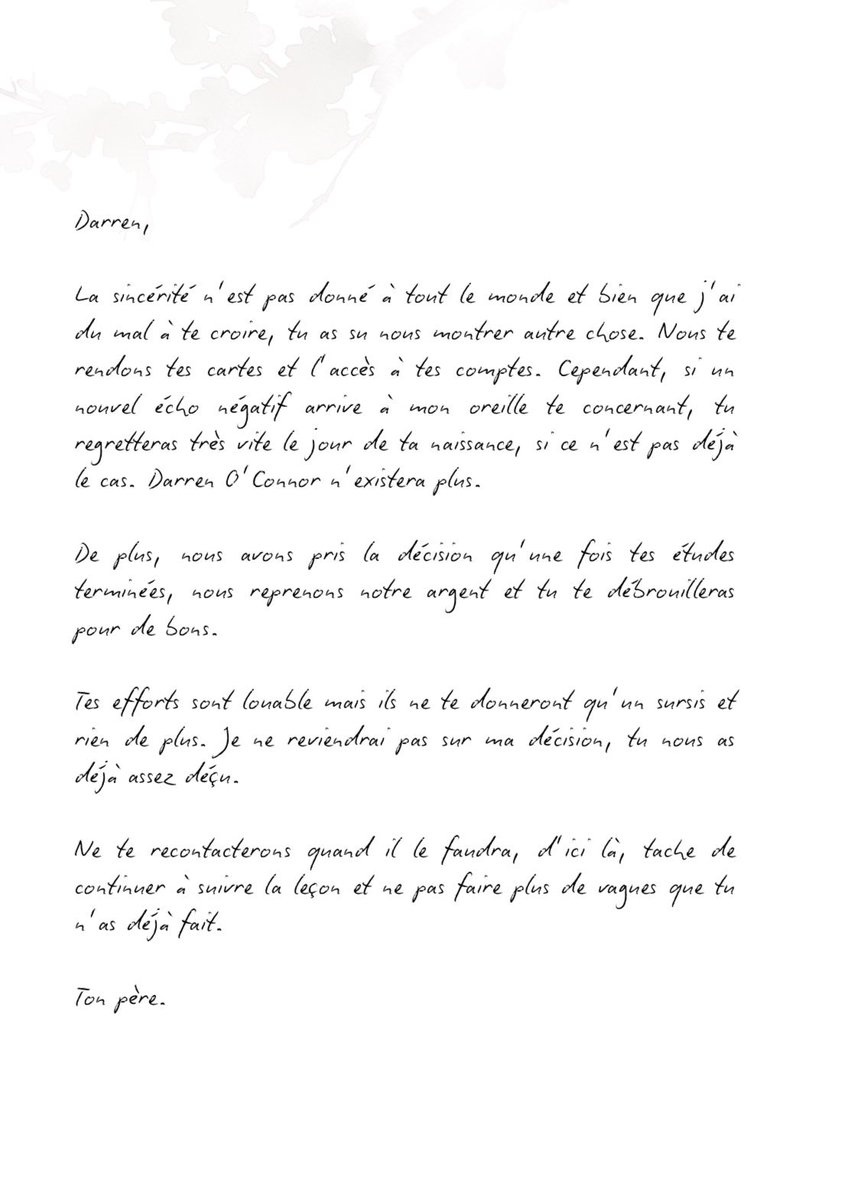 Darren,
La sincérité n'est pas donné à tout le monde et bien que j'ai
du mal à te croire, tu as su nous montrer autre chose. Nous te
rendons tes cartes et l'accès à tes comptes. Cependant, si un
nouvel écho négatif arrive à mon oreille te concernant, tu
regretteras très vite le jour de ta naissance, si ce n'est pas déjà
le cas. Darren O'Connor n'existera plus.
De plus, nous avons pris la décision qu'une fois tes études
terminées, nous reprenons notre argent et tu te débrouilleras
pour de bons.
Tes efforts sont louable mais ils ne te donneront qu'un sursis et
rien de plus. Je ne reviendrai pas sur ma décision, tu nous as
déjà assez déçu.
Ne te recontacterons quand il le faudra, d'ici là, tache de
continuer à suivre la leçon et ne pas faire plus de vagues que tu
n'as déjà fait.
Ton père.